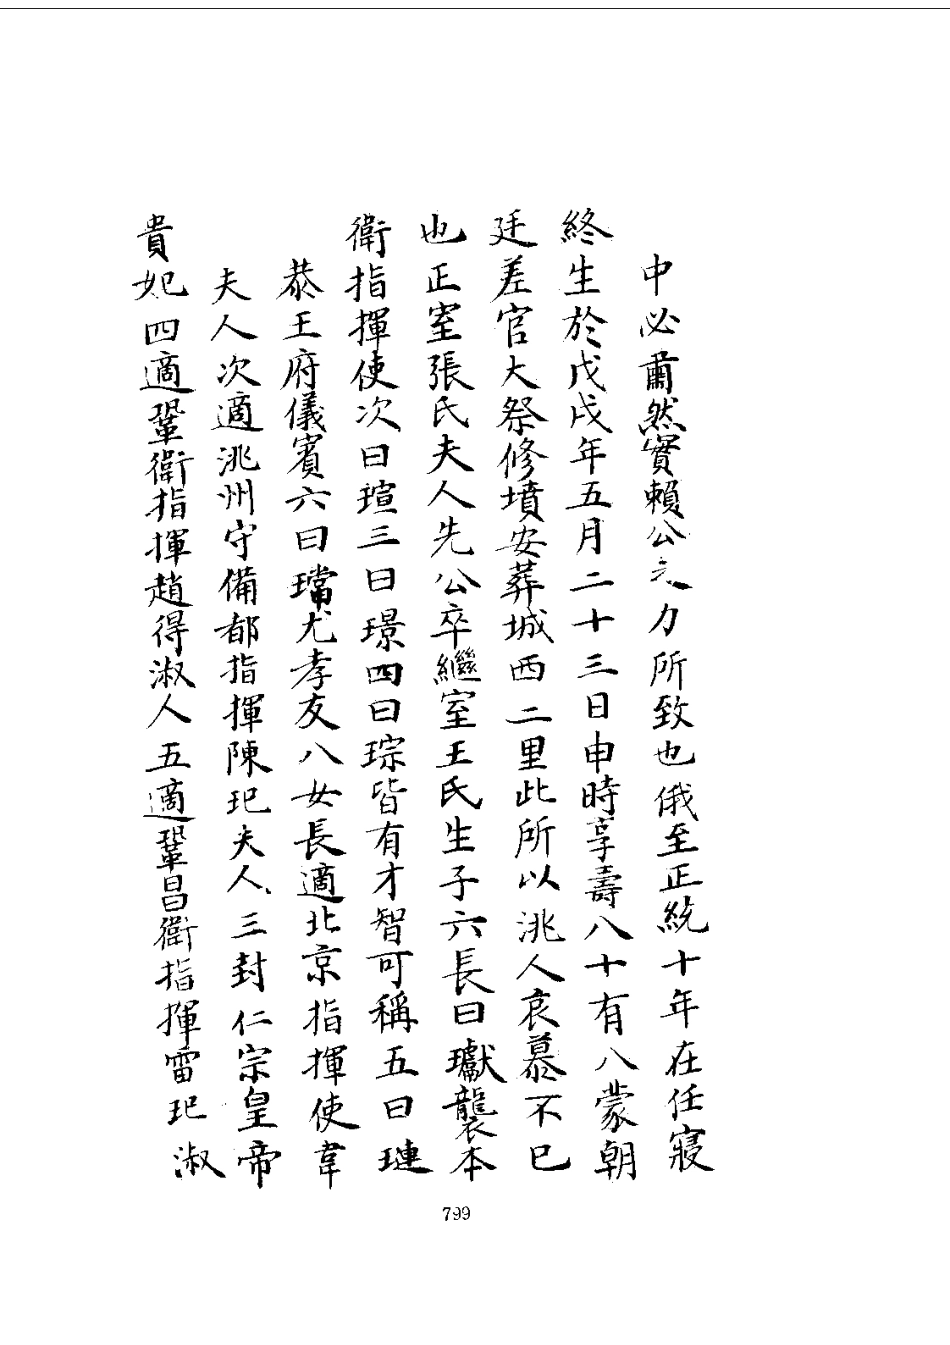 中必肅然實賴公之力所致也俄至正統十年在任寢
終生於戊戌年五月二十三日申時享壽八十有八蒙朝
廷差官大祭修墳安葬城西二里此所以洮人哀慕不已
也正室張氏夫人先公卒繼室王氏生子六長曰瓛襲本
衛指揮使次曰瑄三曰璟四曰琮皆有才智可稱五曰璉
恭王府儀賓六曰璫尤孝友八女長適北京指揮使韋
夫人次適洮州守備都指揮陳玘夫人三封仁宗皇帝
貴妃四適鞏衛指揮趙得淑人五適鞏昌衛指揮雷玘淑
799